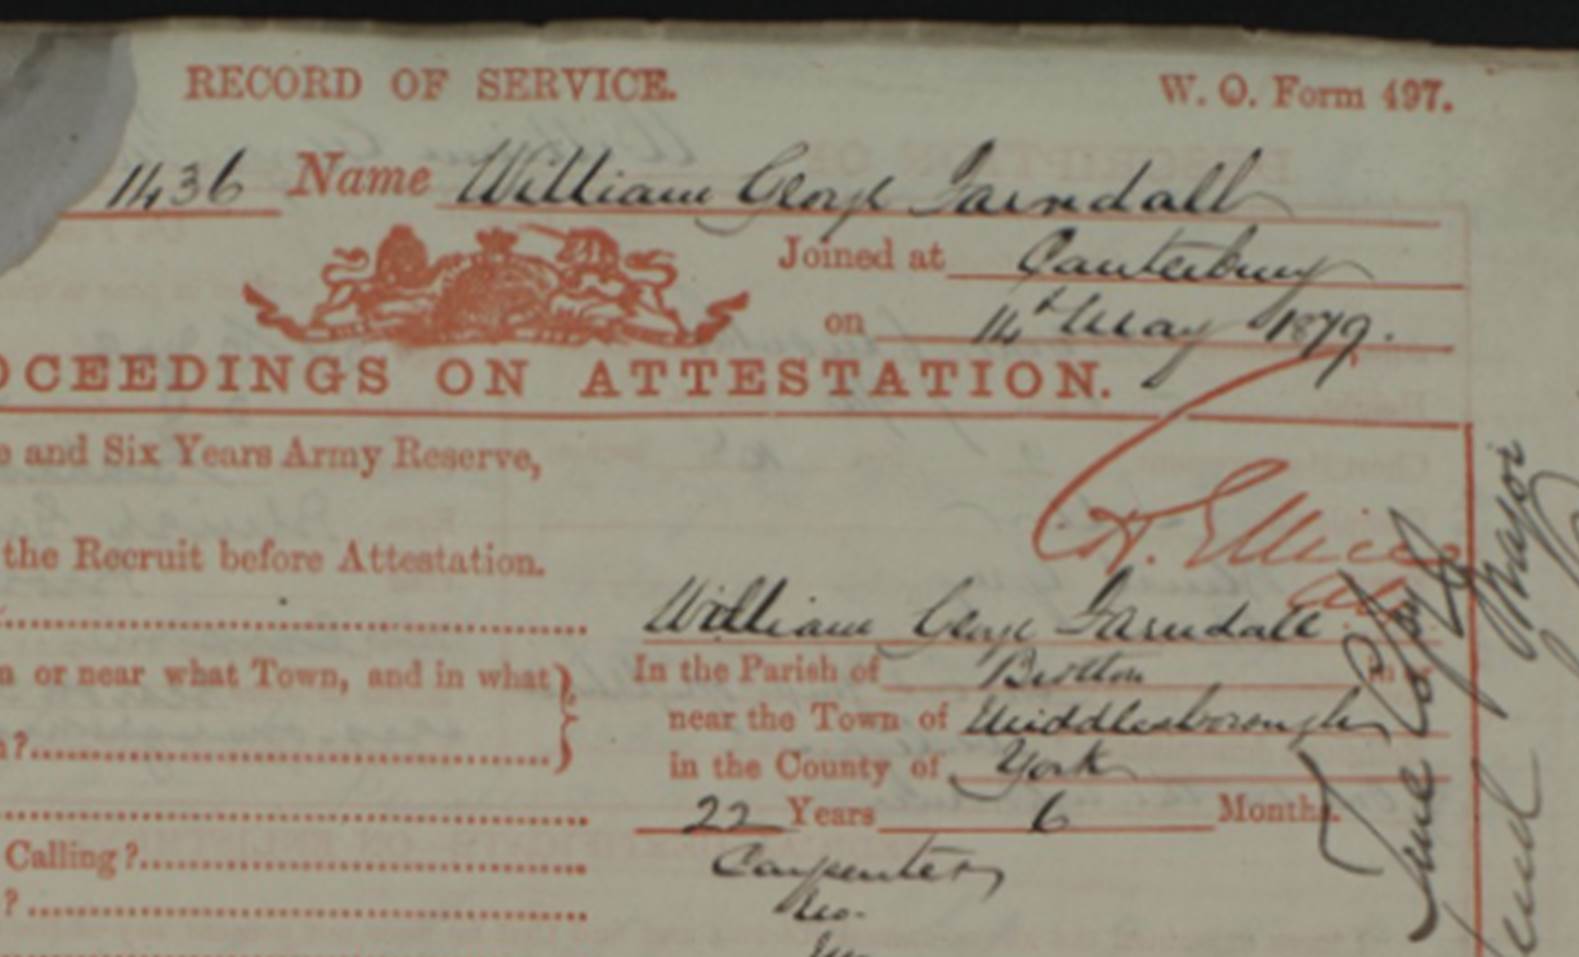 RECORD OF SERVICE. W. O. Form 497.
1436 Name William George Farndall
Joined at Canterbury
on 14th May 1879.
OCEEDINGS ON ATTESTATION.
e and Six Years Army Reserve,
the Recruit before Attestation.
William George Farndale
n or near what Town, and in what
In the Parish of Brotton in or
near the Town of Middlesborough
n?
in the County of York
22 Years 6 Months.
Calling? Carpenter
? No.
No
True Copy
Major